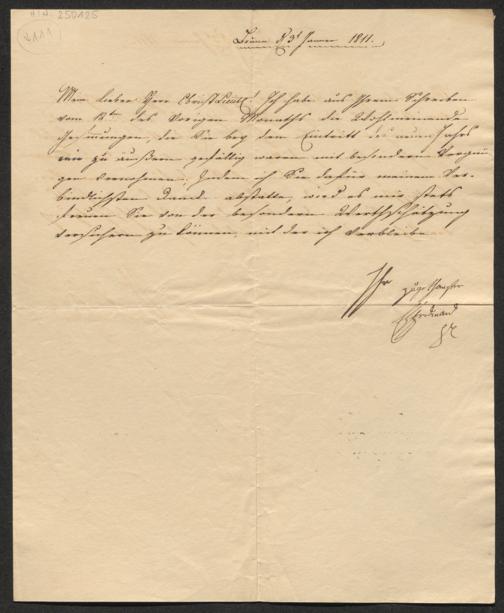 H.I.N. 250125
Brünn d 3t Jänner 1811.
Mein lieber Herr Obrist Lieut! Ich habe aus Ihrem Schreiben
vom des vorigen Monaths die Wohlmeinende
Gesinnungen, die Sie bey dem Eintritt neuen Jahrs
mir zu äußern gefällig waren mit besondern Vergnü-
gen vernohmen. Indem ich Sie dafür meinem Ver-
bindlichsten Dank abstatte, wird es mir stets
freuen Sie von der besondern Werthschätzung
versichern zu können, mit der ich verbleibe
Ihr
Ferdinand